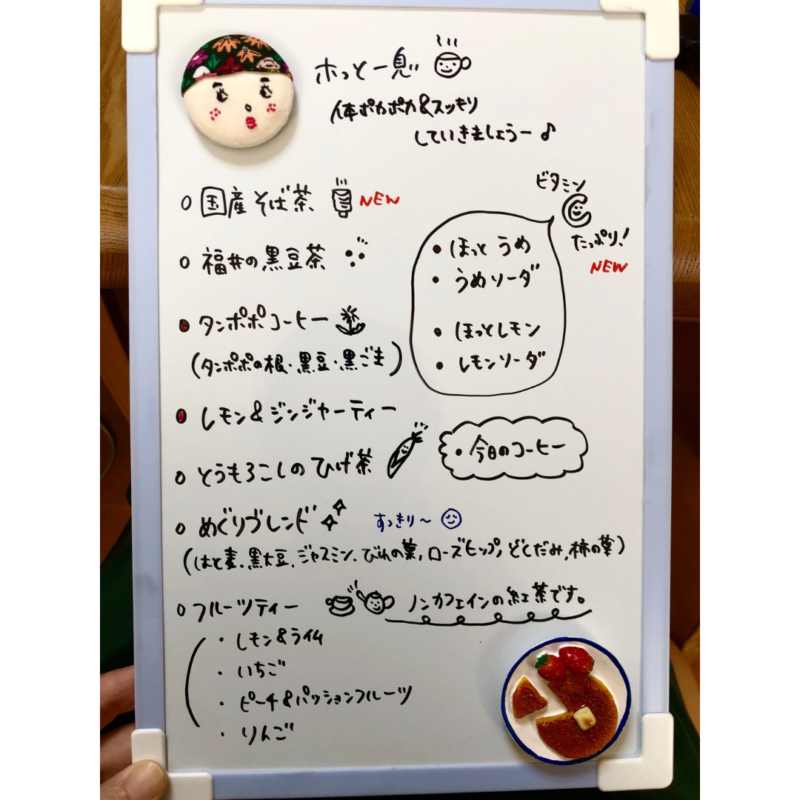 ホっと一息
体ポカポカ&スッキリ
していきましょうー♪
国産そば茶 NEW
福井の黒豆茶
タンポポコーヒー
(タンポポの根・黒豆・黒ごま)
レモン&ジンジャーティー
とうもろこしのひげ茶
めぐりブレンド
すっきり〜
(はと麦、黒大豆、ジャスミン、びわの葉、ローズヒップ、どくだみ、柿の葉)
フルーツティー
ノンカフェインの紅茶です。
・レモン&ライム
・いちご
・ピーチ&パッションフルーツ
・りんご
ビタミン
C
たっぷり!
NEW
・ほっとうめ
・うめソーダ
・ほっとレモン
・レモンソーダ
・今日のコーヒー